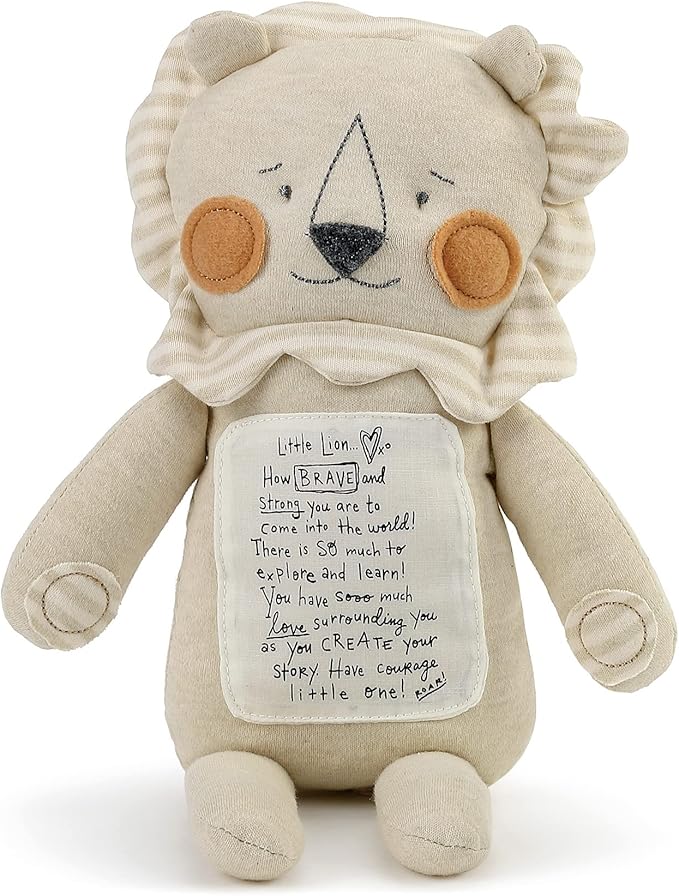 Little Lion... xo
How BRAVE and
strong you are to
come into the world!
There is SO much to
explore and learn!
You have sooo much
love surrounding you
as you CREATE your
story. Have courage
little one! ROAR!